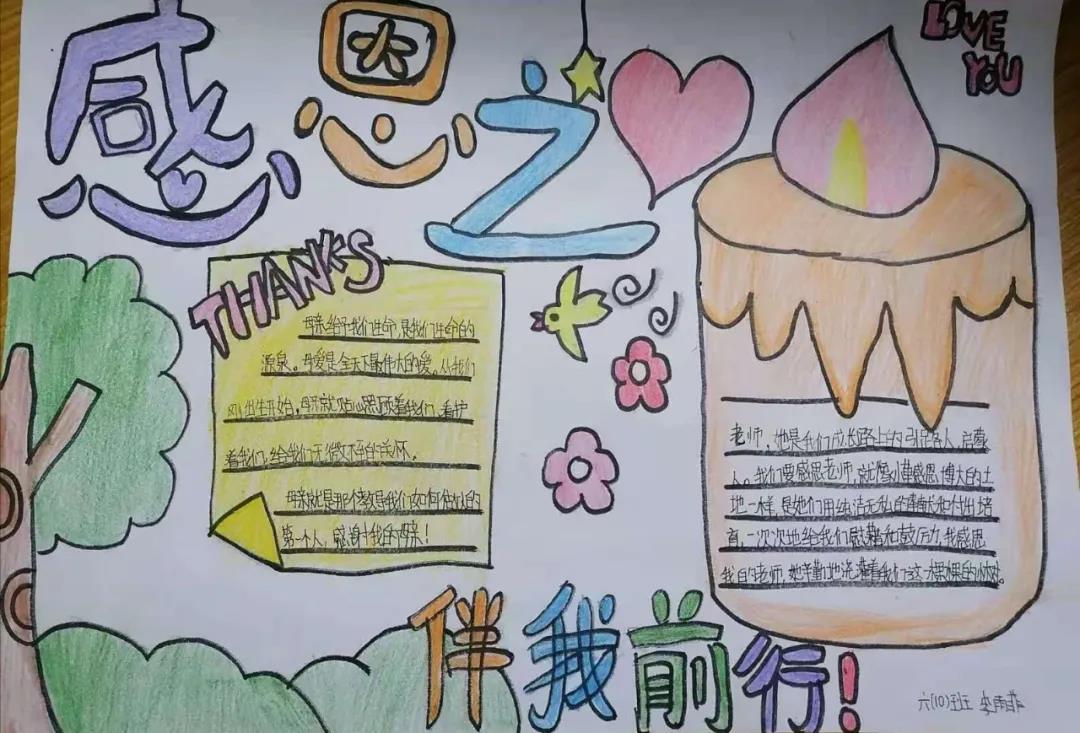 感恩之
LOVE
YOU
THANKS
母亲给予我们生命,是我们生命的
源泉。母爱是全天下最伟大的爱。从我们
刚出生开始,母亲就贴心照顾着我们、看护
着我们,给我们无微不至的关怀。
母亲就是那个教导我们如何做人的
第一个人,感谢我的母亲!
老师,她是我们成长路上的引路人、启蒙
人。我们要感恩老师,就像小草感恩博大的土
地一样,是她们用纯洁无私的奉献和付出培
育,一次次地给我们慰藉和鼓励,我感恩
我的老师,她辛勤地浇灌着我们这一棵棵的小树。
伴我前行!
六(10)班 李雨菲